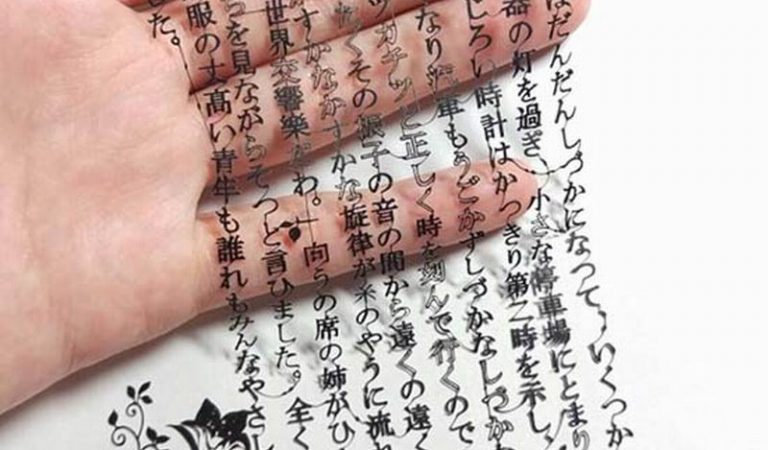 はだんだんしづかになって、いくつか
器の灯を過ぎ、小さな停車場にとまり
じろい時計はかっきり第二時を示し、
なり汽車もうごかずしづかなしづか
ツカチッと正しく時を刻んで行くので
たくその振子の音の間から遠くの遠く
すかなかすかな旋律が糸のやうに流れ
世界交響樂だわ。」向うの席の姉がひ
らを見ながらそっと言ひました。全く
服の丈髙い青年も誰れもみんなやさし
した。